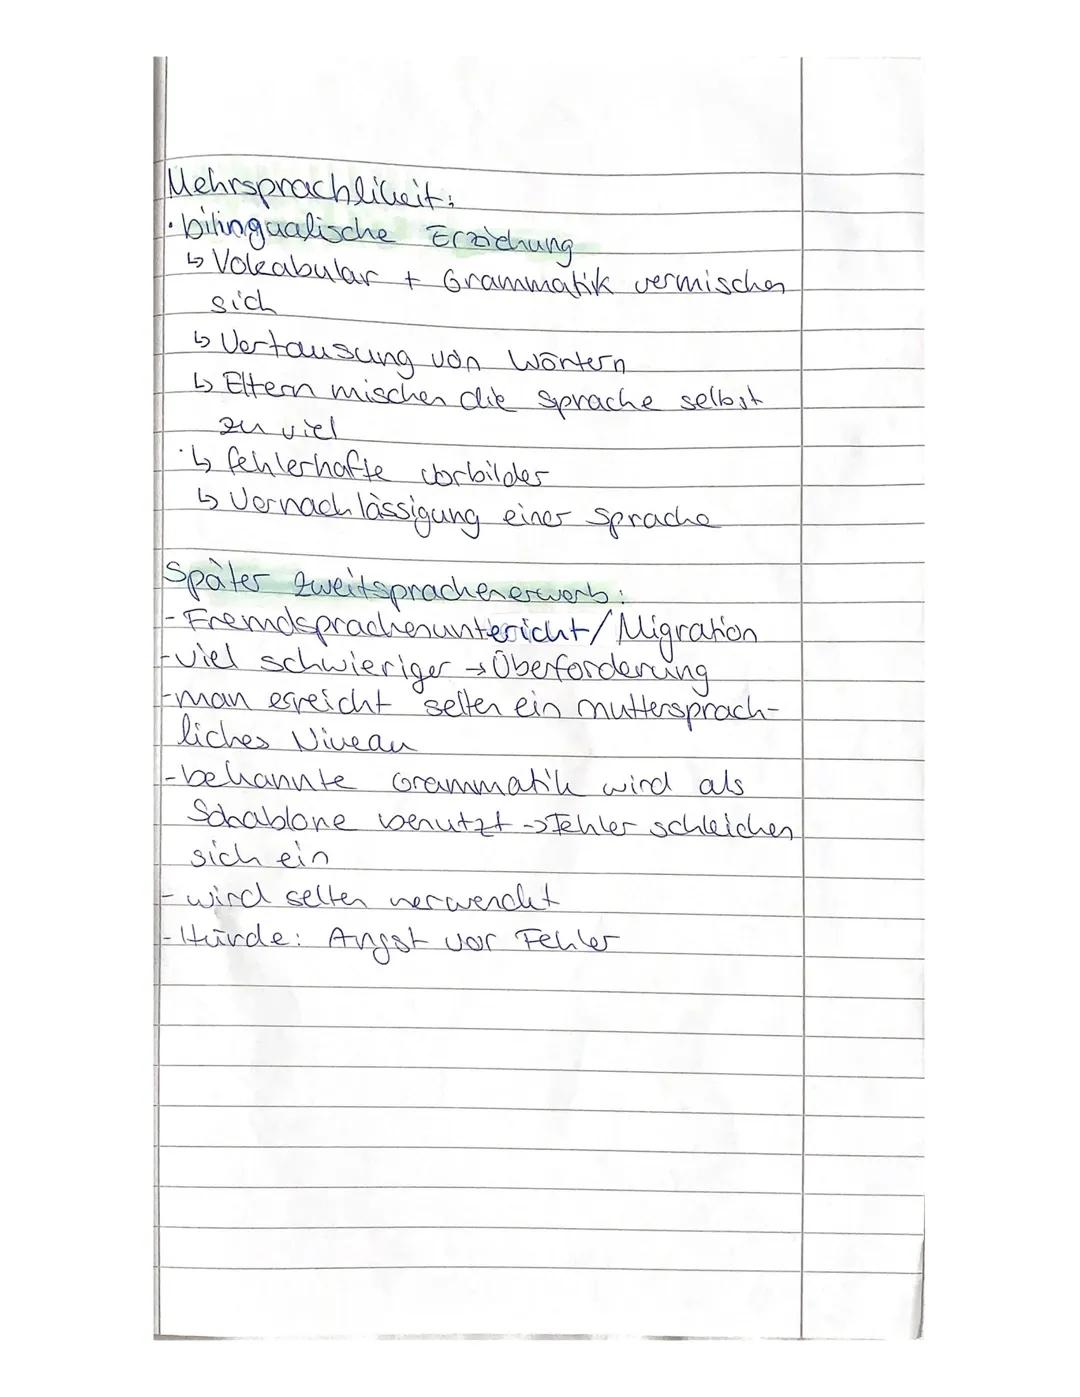 Mehrsprachlikeit:
· bilingualische Erziehung
↳ Vokabular + Grammatik vermischen
sich
↳ Vertausung von Wörtern
↳ Eltern mischen die Sprache selbst
zu viel
↳ fehlerhafte Vorbilder
↳ Vernachlässigung einer Sprache
Später Zweitsprachenerwerb:
- Fremdsprachenuntericht/Migration
- viel schwieriger → Überforderung
- man erreicht selten ein muttersprach-
liches Niveau
- bekannte Grammatik wird als
Schablone benutzt → Fehler schleichen
sich ein
- wird selten verwendet
- Hürde: Angst vor Fehler